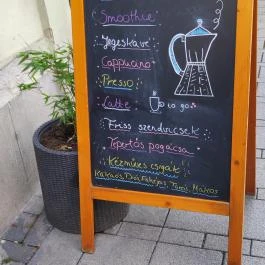 Smoothie
Jegeskávé
Cappucino
Presso
Latte to go
Friss szendvicsek
Tepertős pogácsa
Kézműves csigák
Kakaós, Dió, Fahéjas, Túrós, Mákos